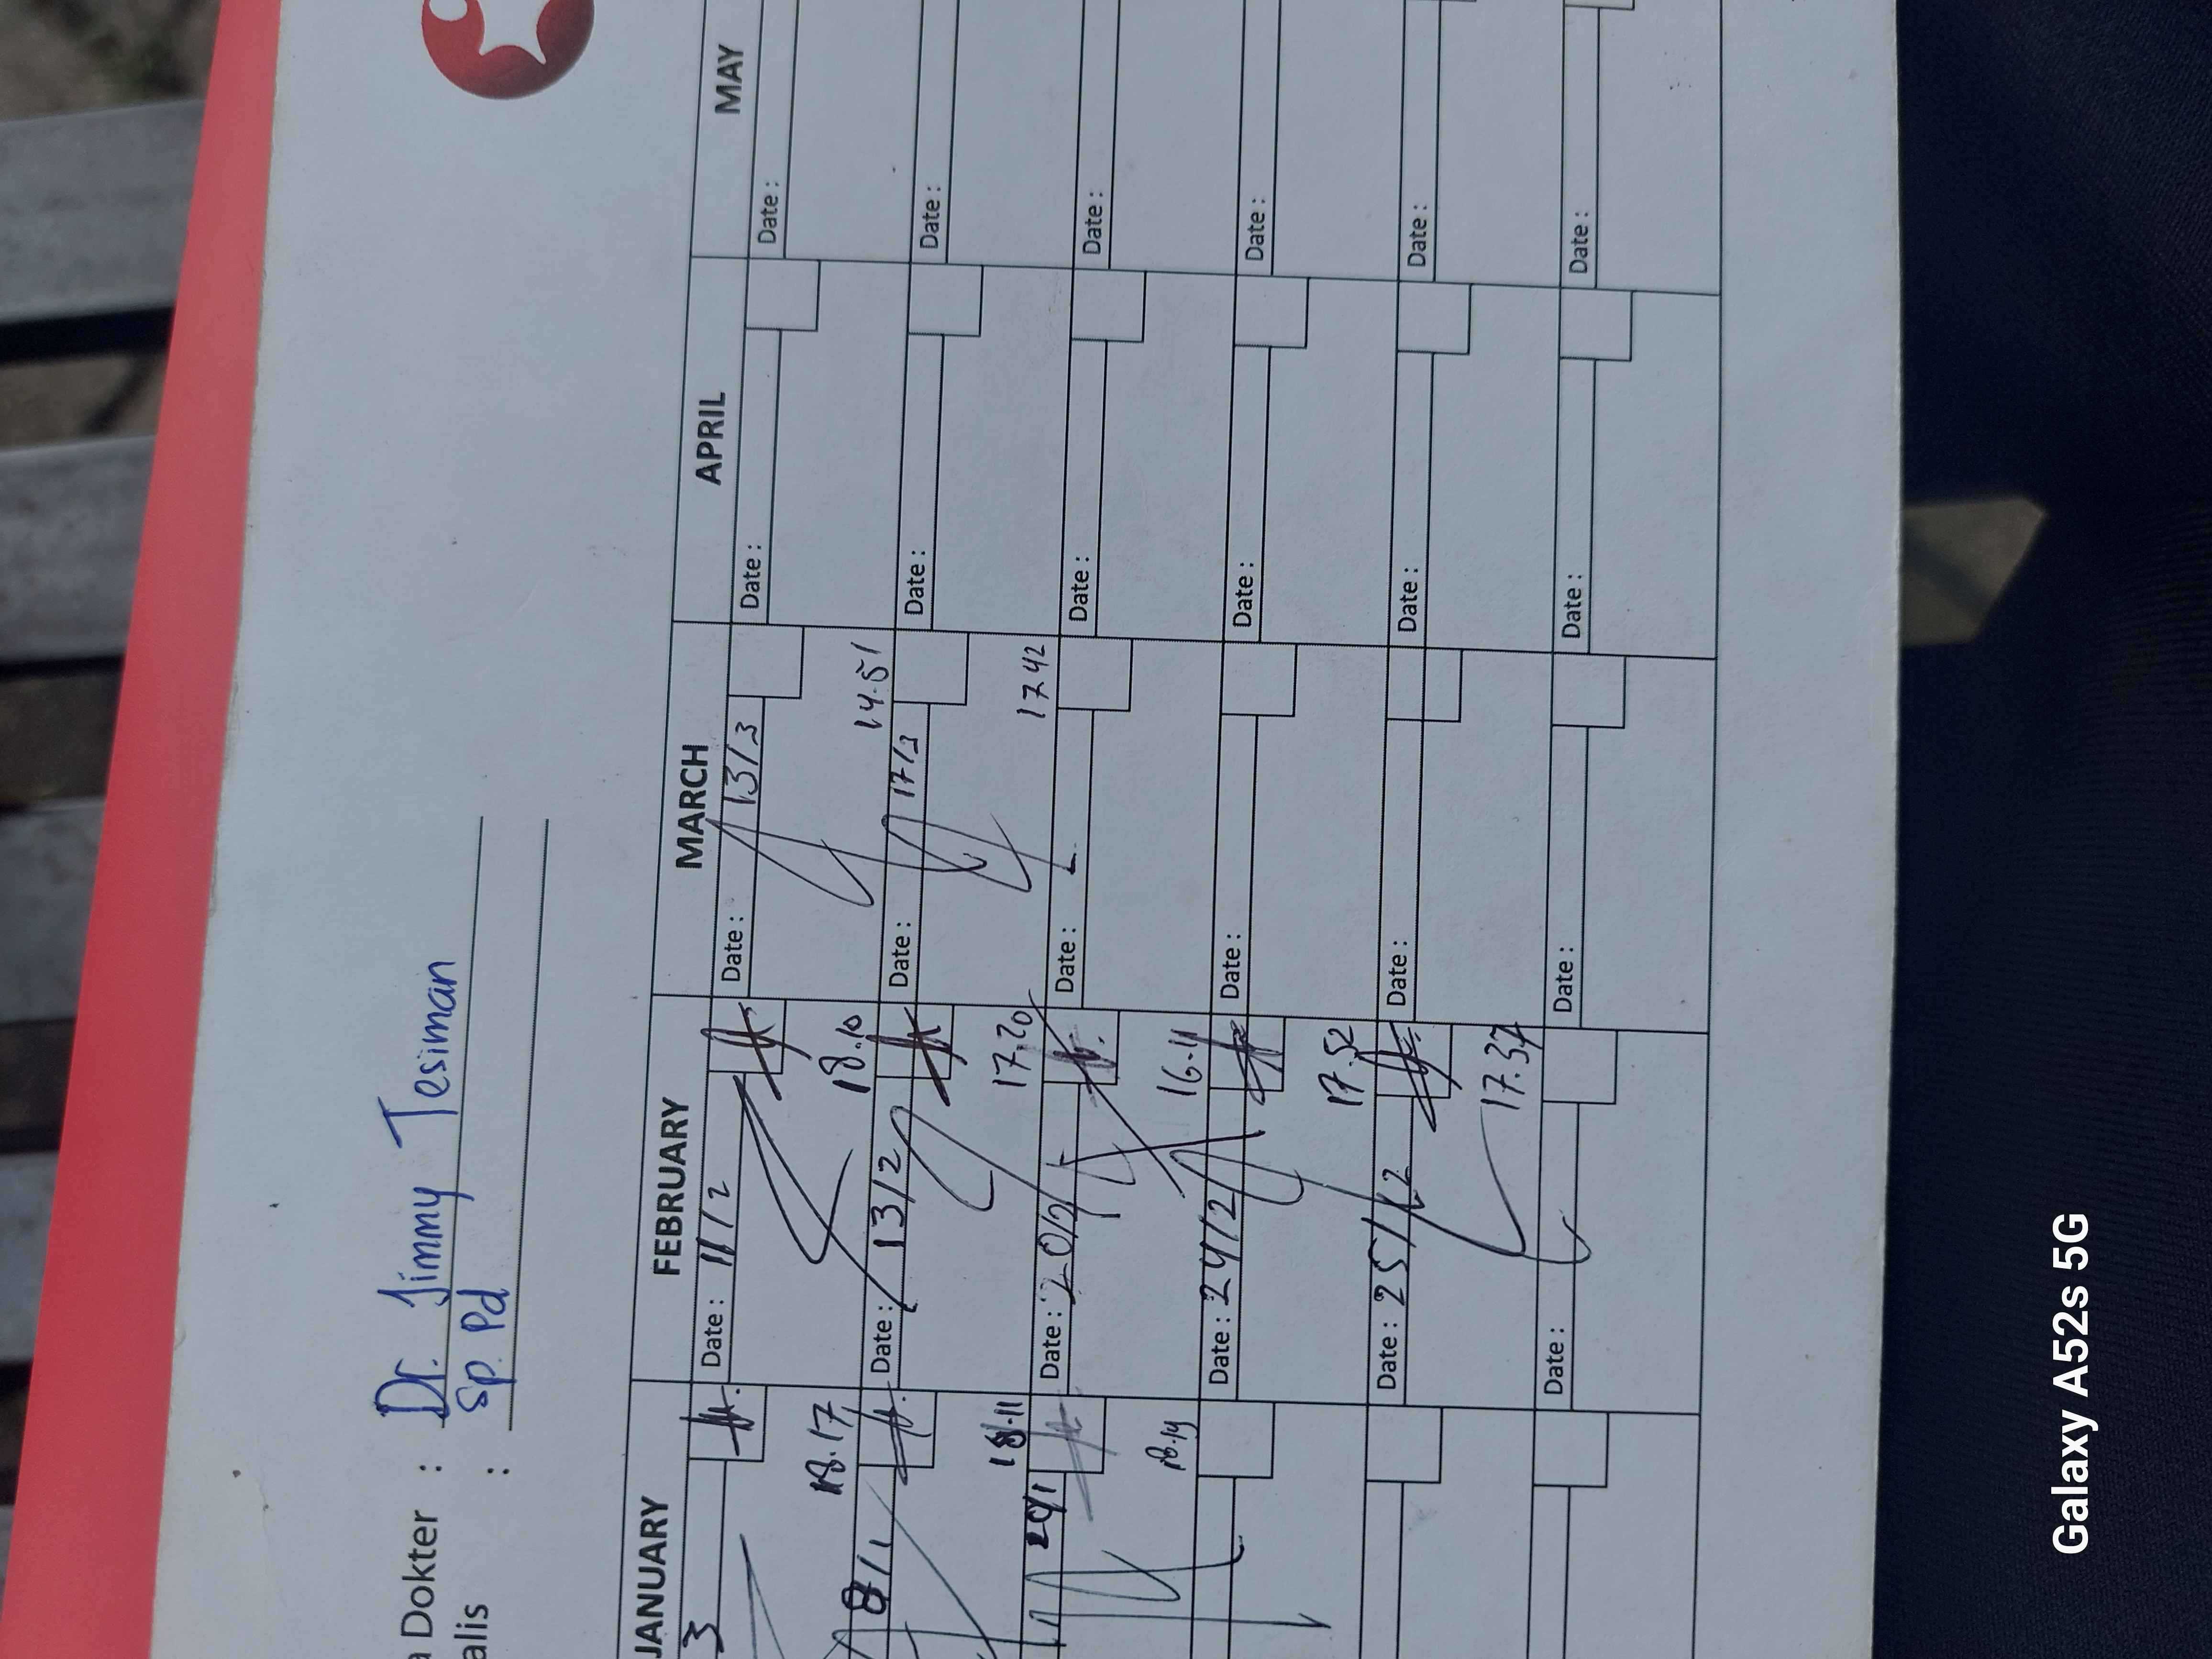 a Dokter : Dr. Jimmy Tesiman
alis : Sp. Pd
JANUARY FEBRUARY MARCH APRIL MAY
3 Date : 11/2 Date : 13/3 Date : Date :
18.17 18.10 14.51
8/1 Date : 13/2 Date : 17/3 Date : Date :
18.11 17.20 17 42
Date : 20/2 Date : Date : Date :
18.19 16.11
Date : 24/2 Date : Date : Date :
17.52
Date : 25/2 Date : Date : Date :
17.37
Date : Date : Date : Date :
Galaxy A52s 5G